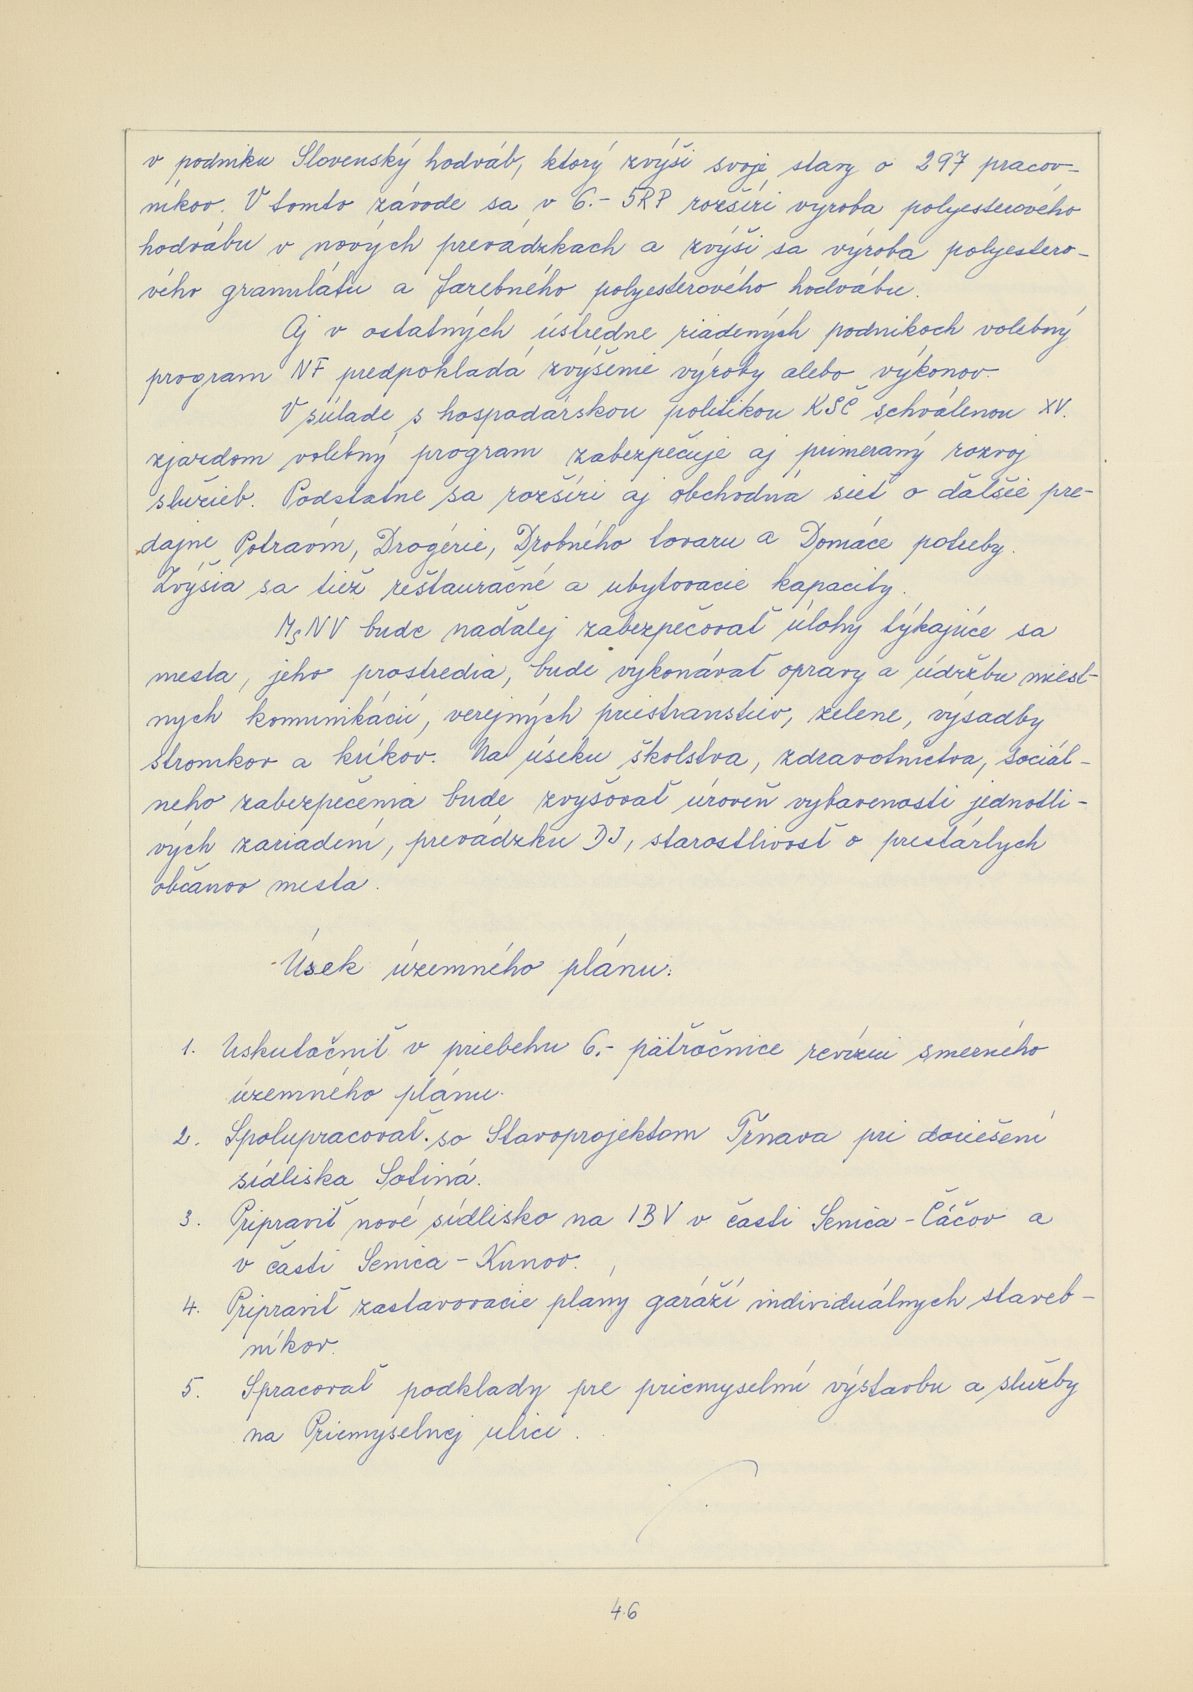 v podniku Slovenský hodváb, ktorý zvýši svoje stavy o 297 pracov-
níkov. V tomto závode sa v 6.- 5RP rozšíri výroba polyesterového
hodvábu v nových prevádzkach a zvýši sa výroba polyestero-
vého granulátu a farebného polyesterového hodvábu.
Aj v ostatných ústredne riadených podnikoch volebný
program NF predpokladá zvýšenie výroby alebo výkonov.
V súlade s hospodárskou politikou KSČ schválenou XV.
zjazdom volebný program zabezpečuje aj primeraný rozvoj
služieb. Podstatne sa rozšíri aj obchodná sieť o ďalšie pre-
dajne Potravín, Drogérie, Drobného tovaru a Domáce potreby.
Zvýšia sa tiež reštauračné a ubytovacie kapacity.
MsNV bude naďalej zabezpečovať úlohy týkajúce sa
mesta, jeho prostredia, bude vykonávať opravy a údržbu miest-
nych komunikácií, verejných priestranstiev, zelene, výsadby
stromkov a kríkov. Na úseku školstva, zdravotníctva, sociál-
neho zabezpečenia bude zvyšovať úroveň vybavenosti jednotli-
vých zariadení, prevádzku DJ, starostlivosť o prestárlych
občanov mesta.
Úsek územného plánu:
1. Uskutočniť v priebehu 6.- päťročnice revíziu smerného
územného plánu.
2. Spolupracovať so Stavoprojektom Trnava pri doriešení
sídliska Sotiná.
3. Pripraviť nové sídlisko na IBV v časti Senica - Čáčov a
v časti Senica - Kunov.
4. Pripraviť zastavovacie plány garáží individuálnych staveb-
níkov.
5. Spracovať podklady pre priemyselnú výstavbu a služby
na Priemyselnej ulici.
46